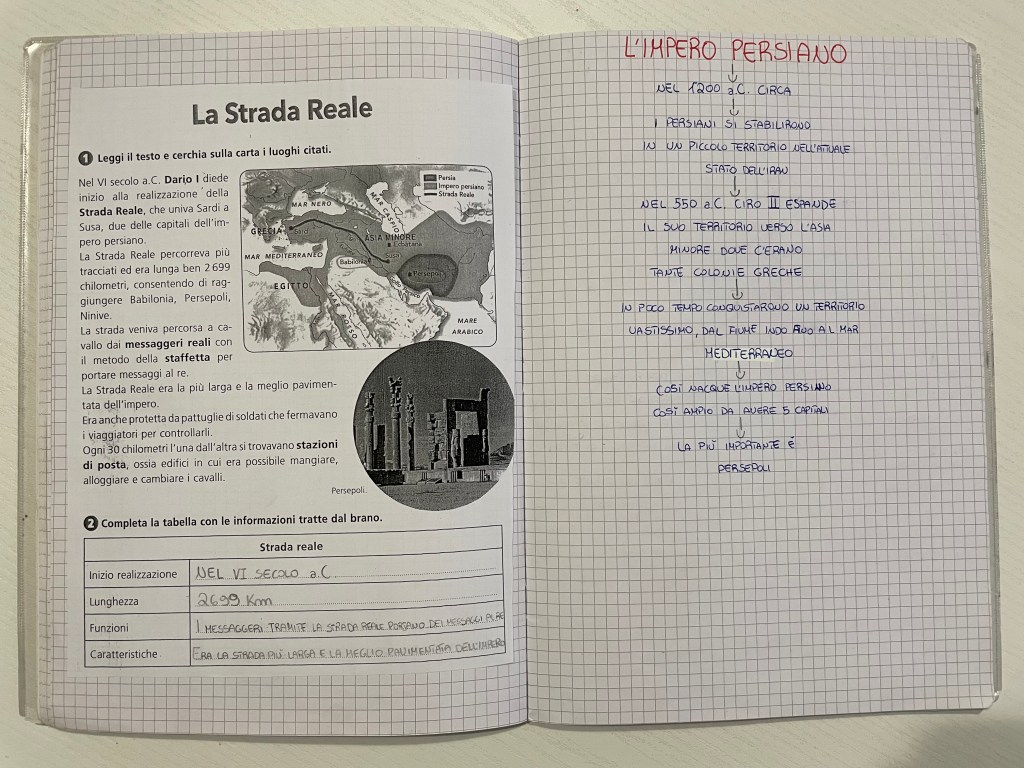 La Strada Reale
1 Leggi il testo e cerchia sulla carta i luoghi citati.
Nel VI secolo a.C. Dario I diede
inizio alla realizzazione della
Strada Reale, che univa Sardi a
Susa, due delle capitali dell'im-
pero persiano.
La Strada Reale percorreva più
tracciati ed era lunga ben 2 699
chilometri, consentendo di rag-
giungere Babilonia, Persepoli,
Ninive.
La strada veniva percorsa a ca-
vallo dai messaggeri reali con
il metodo della staffetta per
portare messaggi al re.
La Strada Reale era la più larga e la meglio pavimen-
tata dell'impero.
Era anche protetta da pattuglie di soldati che fermavano
i viaggiatori per controllarli.
Ogni 30 chilometri l'una dall'altra si trovavano stazioni
di posta, ossia edifici in cui era possibile mangiare,
alloggiare e cambiare i cavalli.
Persia
Impero persiano
Strada Reale
MAR NERO
MAR CASPIO
GRECIA
Sardi
ASIA MINORE
Ecbatana
MAR MEDITERRANEO
Babilonia
Susa
Persepoli
EGITTO
MAR ROSSO
MARE
ARABICO
Persepoli.
2 Completa la tabella con le informazioni tratte dal brano.
Strada reale
Inizio realizzazione NEL VI SECOLO a.C.
Lunghezza 2699 Km
Funzioni I MESSAGGERI TRAMITE LA STRADA REALE PORTANO DEI MESSAGGI AL RE
Caratteristiche ERA LA STRADA PIÙ LARGA E LA MEGLIO PAVIMENTATA DELL'IMPERO
L'IMPERO PERSIANO
NEL 1200 a.C. CIRCA
I PERSIANI SI STABILIRONO
IN UN PICCOLO TERRITORIO NELL'ATTUALE
STATO DELL'IRAN
NEL 550 a.C. CIRO II ESPANDE
IL SUO TERRITORIO VERSO L'ASIA
MINORE DOVE C'ERANO
TANTE COLONIE GRECHE
IN POCO TEMPO CONQUISTARONO UN TERRITORIO
VASTISSIMO, DAL FIUME INDO FINO AL MAR
MEDITERRANEO
COSÌ NACQUE L'IMPERO PERSIANO
COSÌ AMPIO DA AVERE 5 CAPITALI
LA PIÙ IMPORTANTE È
PERSEPOLI